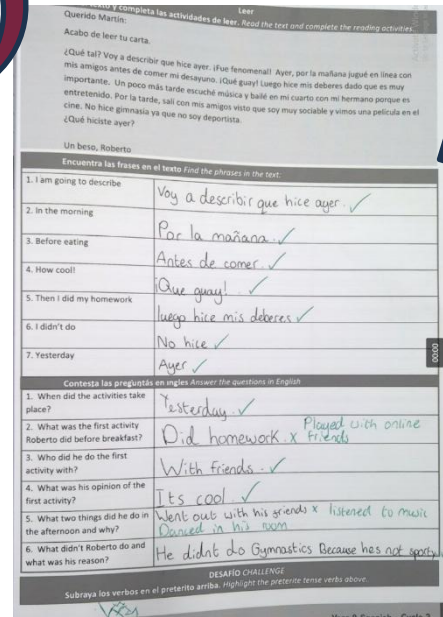 Leer
y completa las actividades de leer. Read the text and complete the reading activities.
Querido Martín:
Acabo de leer tu carta.
¿Qué tal? Voy a describir que hice ayer. ¡Fue fenomenal! Ayer, por la mañana jugué en línea con
mis amigos antes de comer mi desayuno. ¡Qué guay! Luego hice mis deberes dado que es muy
importante. Un poco más tarde escuché música y bailé en mi cuarto con mi hermano porque es
entretenido. Por la tarde, salí con mis amigos visto que soy muy sociable y vimos una película en el
cine. No hice gimnasia ya que no soy deportista.
¿Qué hiciste ayer?
Un beso, Roberto
Encuentra las frases en el texto Find the phrases in the text:
1. I am going to describe
Voy a describir que hice ayer.
2. In the morning
Por la mañana.
3. Before eating
Antes de comer.
4. How cool!
¡Que guay!
5. Then I did my homework
luego hice mis deberes
6. I didn't do
No hice
7. Yesterday
Ayer
Contesta las preguntas en ingles Answer the questions in English
1. When did the activities take
place?
Yesterday.
2. What was the first activity
Roberto did before breakfast?
Did homework. x Played with online
friends
3. Who did he do the first
activity with?
With friends.
4. What was his opinion of the
first activity?
Its cool
5. What two things did he do in
the afternoon and why?
Went out with his friends x listened to music
Danced in his room
6. What didn't Roberto do and
what was his reason?
He didnt do Gymnastics Because hes not sporty
DESAFÍO CHALLENGE
Subraya los verbos en el preterito arriba. Highlight the preterite tense verbs above.
00:00